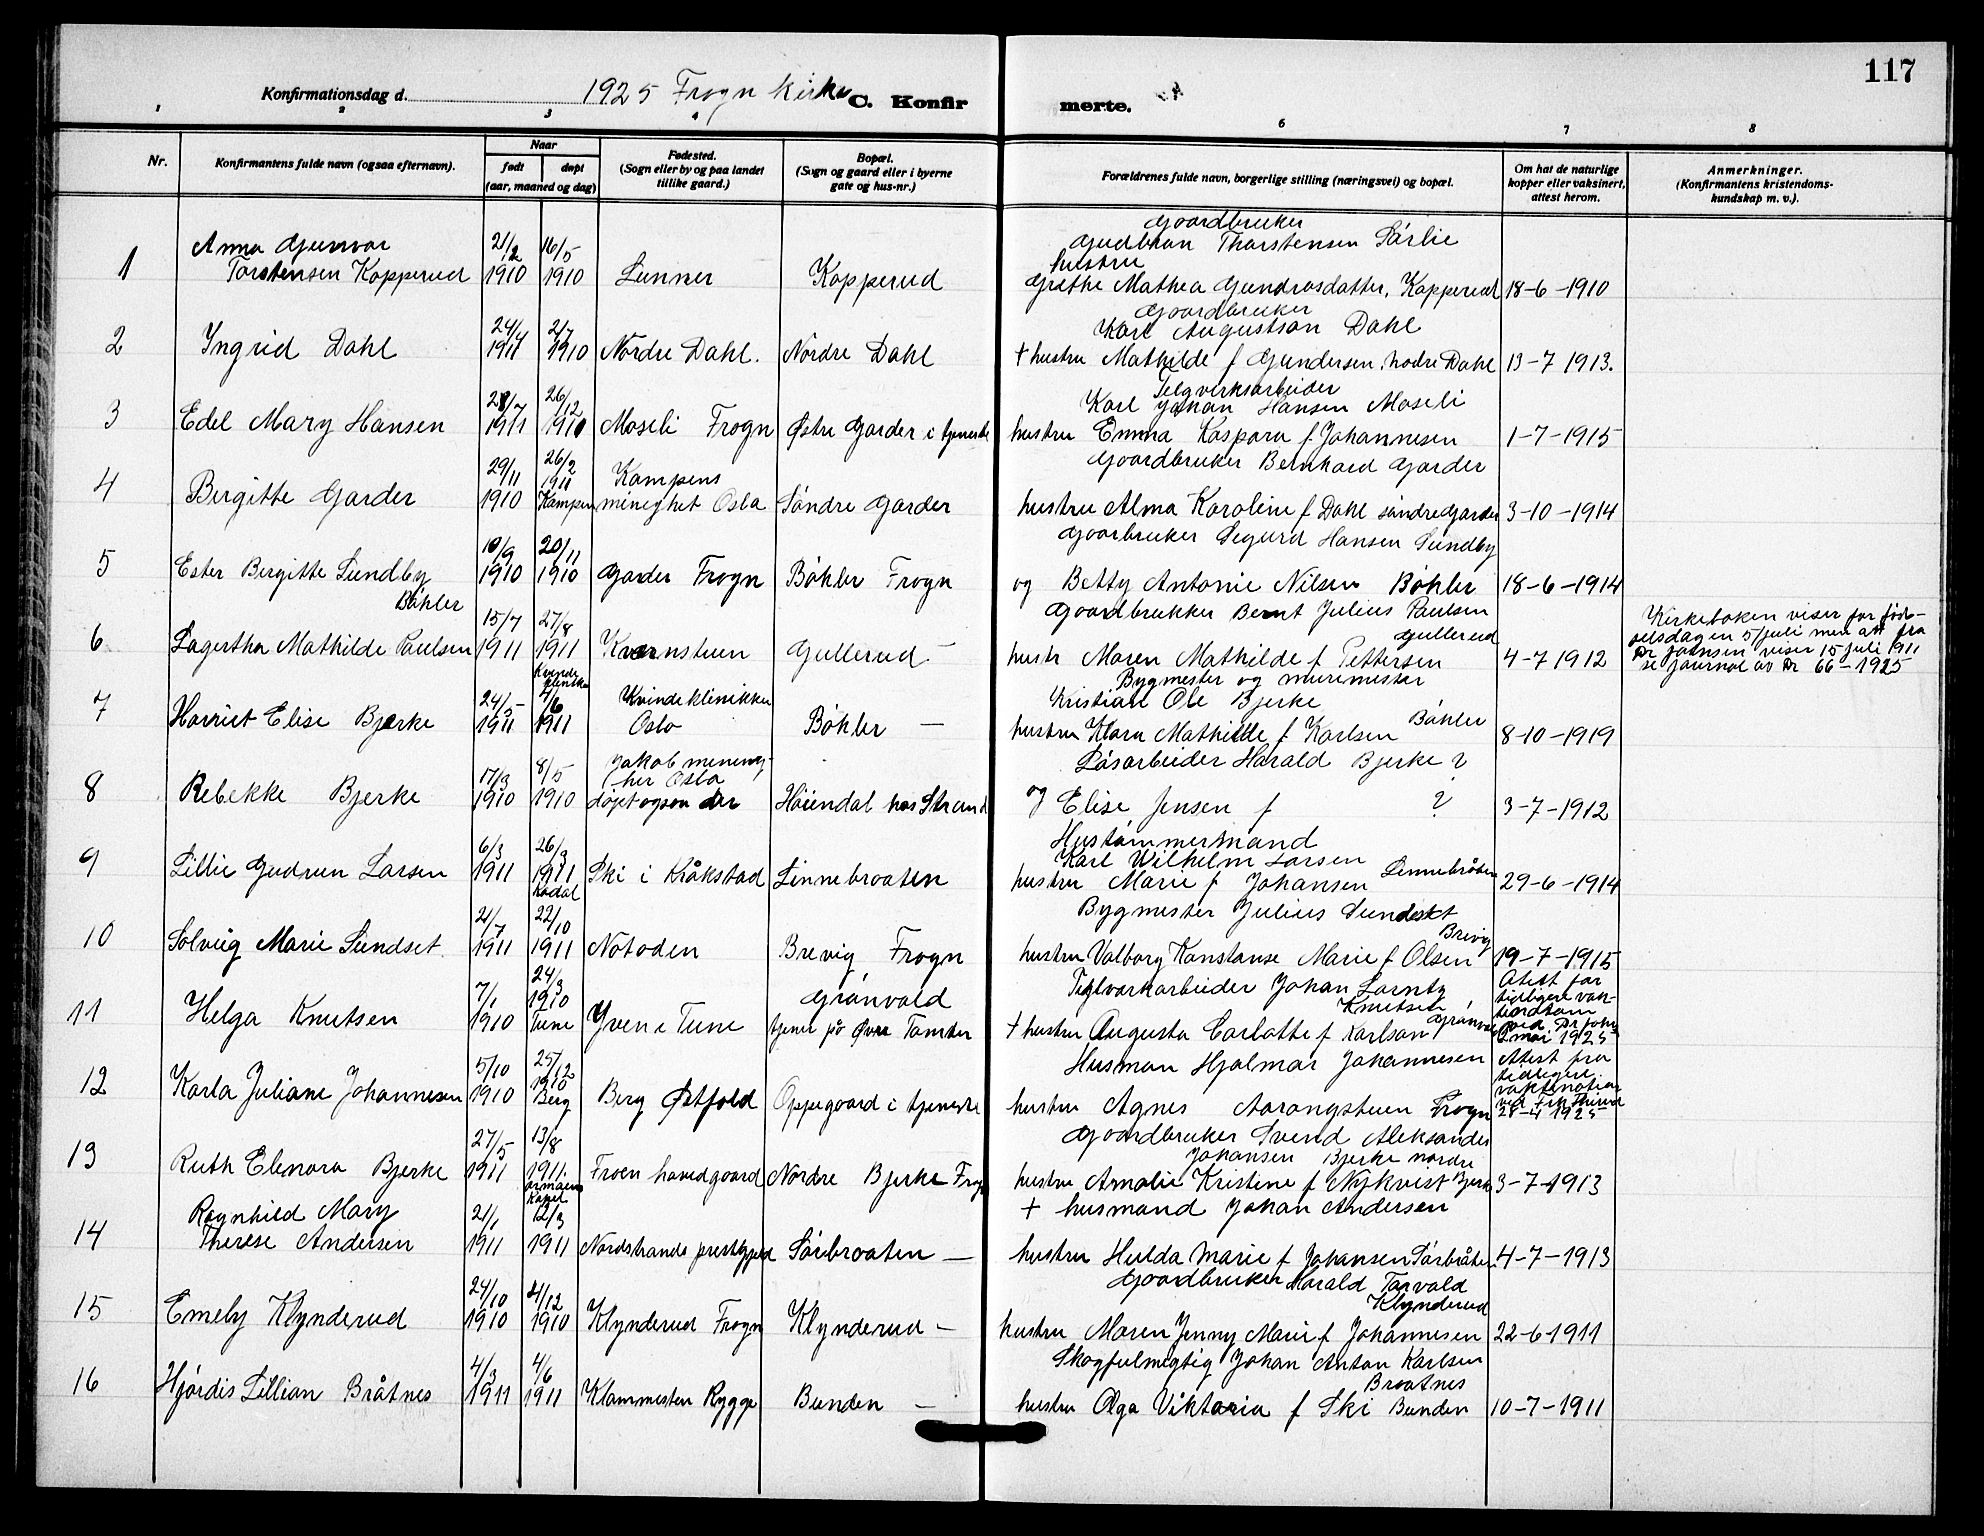 117
Konfirmationsdag d. 1925 Frogn kirke C. Konfirmerte.
1 2 3 4 6 7 8
Nr. Konfirmantens fulde navn (ogsaa efternavn). Naar født døpt (aar, maaned og dag) Fødested. (Sogn eller by og paa landet tillike gaard.) Bopæl. (Sogn og gaard eller i byerne gate og hus-nr.) Forældrenes fulde navn, borgerlige stilling (næringsvei) og bopæl. Om hat de naturlige kopper eller vaksinert, attest herom. Anmerkninger. (Konfirmantens kristendomskundskap m. v.).
Anna Gunvor 21/2 16/5 Gaardbruker
Gudbran Thorstensen Sørlie
1 Torstensen Kopperud 1910 1910 Lunner Kopperud hustru
Grethe Mathea Gundrosdatter, Kopperud 18-6-1910
24/4 2/7 Gaardbruker
Karl Augustson Dahl
2 Ingrid Dahl 1911 1910 Nordre Dahl. Nordre Dahl + hustru Mathilde f Gundersen. nodre Dahl 13-7 1913.
28/7 26/12 Teglverksarbeider
Karl Johan Hansen Moseli
3 Edel Mary Hansen 1911 1911 Moseli Frogn Østre Garder i tjeneste hustru Emma Kaspara f Johannesen 1-7-1915
29/11 26/2 1911 Kampens Gaardbruker Bernhard Garder
4 Birgitte Garder 1910 Kampen minighet Oslo Søndre Garder hustru Alma Karoline f Dahl søndre Garder 3-10-1914
10/9 20/11 Gaarbruker Sigurd Hansen Sundby
5 Ester Bergitte Sundby 1910 1910 Garder Frogn Bøhler Frogn og Betty Antonie Nilsen Bøhler 18-6-1914
Bøhler
15/7 27/8 Gaardbrukker Bernt Julius Paulsen
Gullerud
6 Lagertha Mathilde Paulsen 1911 1911 Kvernstuen Gullerud - hustr Maren Mathilde f Pettersen 4-7 1912
Kirkeboken viser for fød-
selsdagen 5 juli men att fra
Dr Johnsen viser 15 juli 1911
se journal av Dr 66-1925
24/5 4/6 Kvindeklinikken Bygmester og murmester
Kristian Ole Bjerke
7 Harriet Elise Bjerke 1911 1911 Oslo Bøhler - hustru Klara Mathilde f Karlsen Bøhler 8-10-1919
17/3 8/5 Jakob menig-
het Oslo Løsarbeider Harald Bjerke ?
8 Rebekke Bjerke 1910 1910 døpt ogsaa der Høiendal hos Strand og Elise Jensen f ? 3-7-1912
6/3 26/3 Hustømmermand
Karl Wilhelm Larsen
9 Lillie Gudrun Larsen 1911 1911 Ski i Kråkstad Linnebraaten hustru Marie f Johansen Linnebråten 29-6-1914
21/7 22/10 Bygmester Julius Sundset
Brevig
10 Solveig Marie Sundset. 1911 1911 Notoden Brevig Frogn hustru Valborg Konstanse Marie f Olsen 19-7-1915
7/1 24/3 1910 Grønvold Teglverkarbeider Johan Lorntz
Knutsen
11 Helga Knutsen 1910 Tune Yven i Tune tjener på Øvre Tomter + hustru Augusta Carlotte f Karlson Grønvold
Atest for
tidligere vak-
ved Dr
mai 1925
5/10 25/12 1910 Husman Hjalmar Johannesen
12 Karla Juliane Johannesen 1910 Berg Berg Østfold Oppegaard i tjeneste hustru Agnes Aarangstuen Frogn
Attest fra
tidligere
ved
28-4 1925
27/5 13/8 Gaardbruker Svend Aleksander
Johansen Bjerke nordre
13 Ruth Elenora Bjerke 1911 1911. Froen hovedgaard Nordre Bjerke Frogn hustru Amalie Kristine f Nykvist Bjerke 3-7-1913
Ragnhild Mary 21/1 12/3 + husmand Johan Andersen
14 Therese Andersen 1911 1911 Nordstrands prestegjeld Sørebraaten - hustru Hulda Marie f Johansen Sørbråten. 4-7-1913
24/10 4/12 Gaardbruker Harald Torvald
Klynderud
15 Emely Klynderud 1910 1910 Klynderud Frogn Klynderud - hustru Maren Jenny Marie f Johannesen 22-6-1911
4/3 4/6 Skogfulmegtig Johan Anton Karlsen
Braatnes
16 Hjørdis Lillian Bråtnes 1911 1911 Klommesten Rygge Bunden - hustru Olga Viktoria f Ski Bunden 10-7-1911